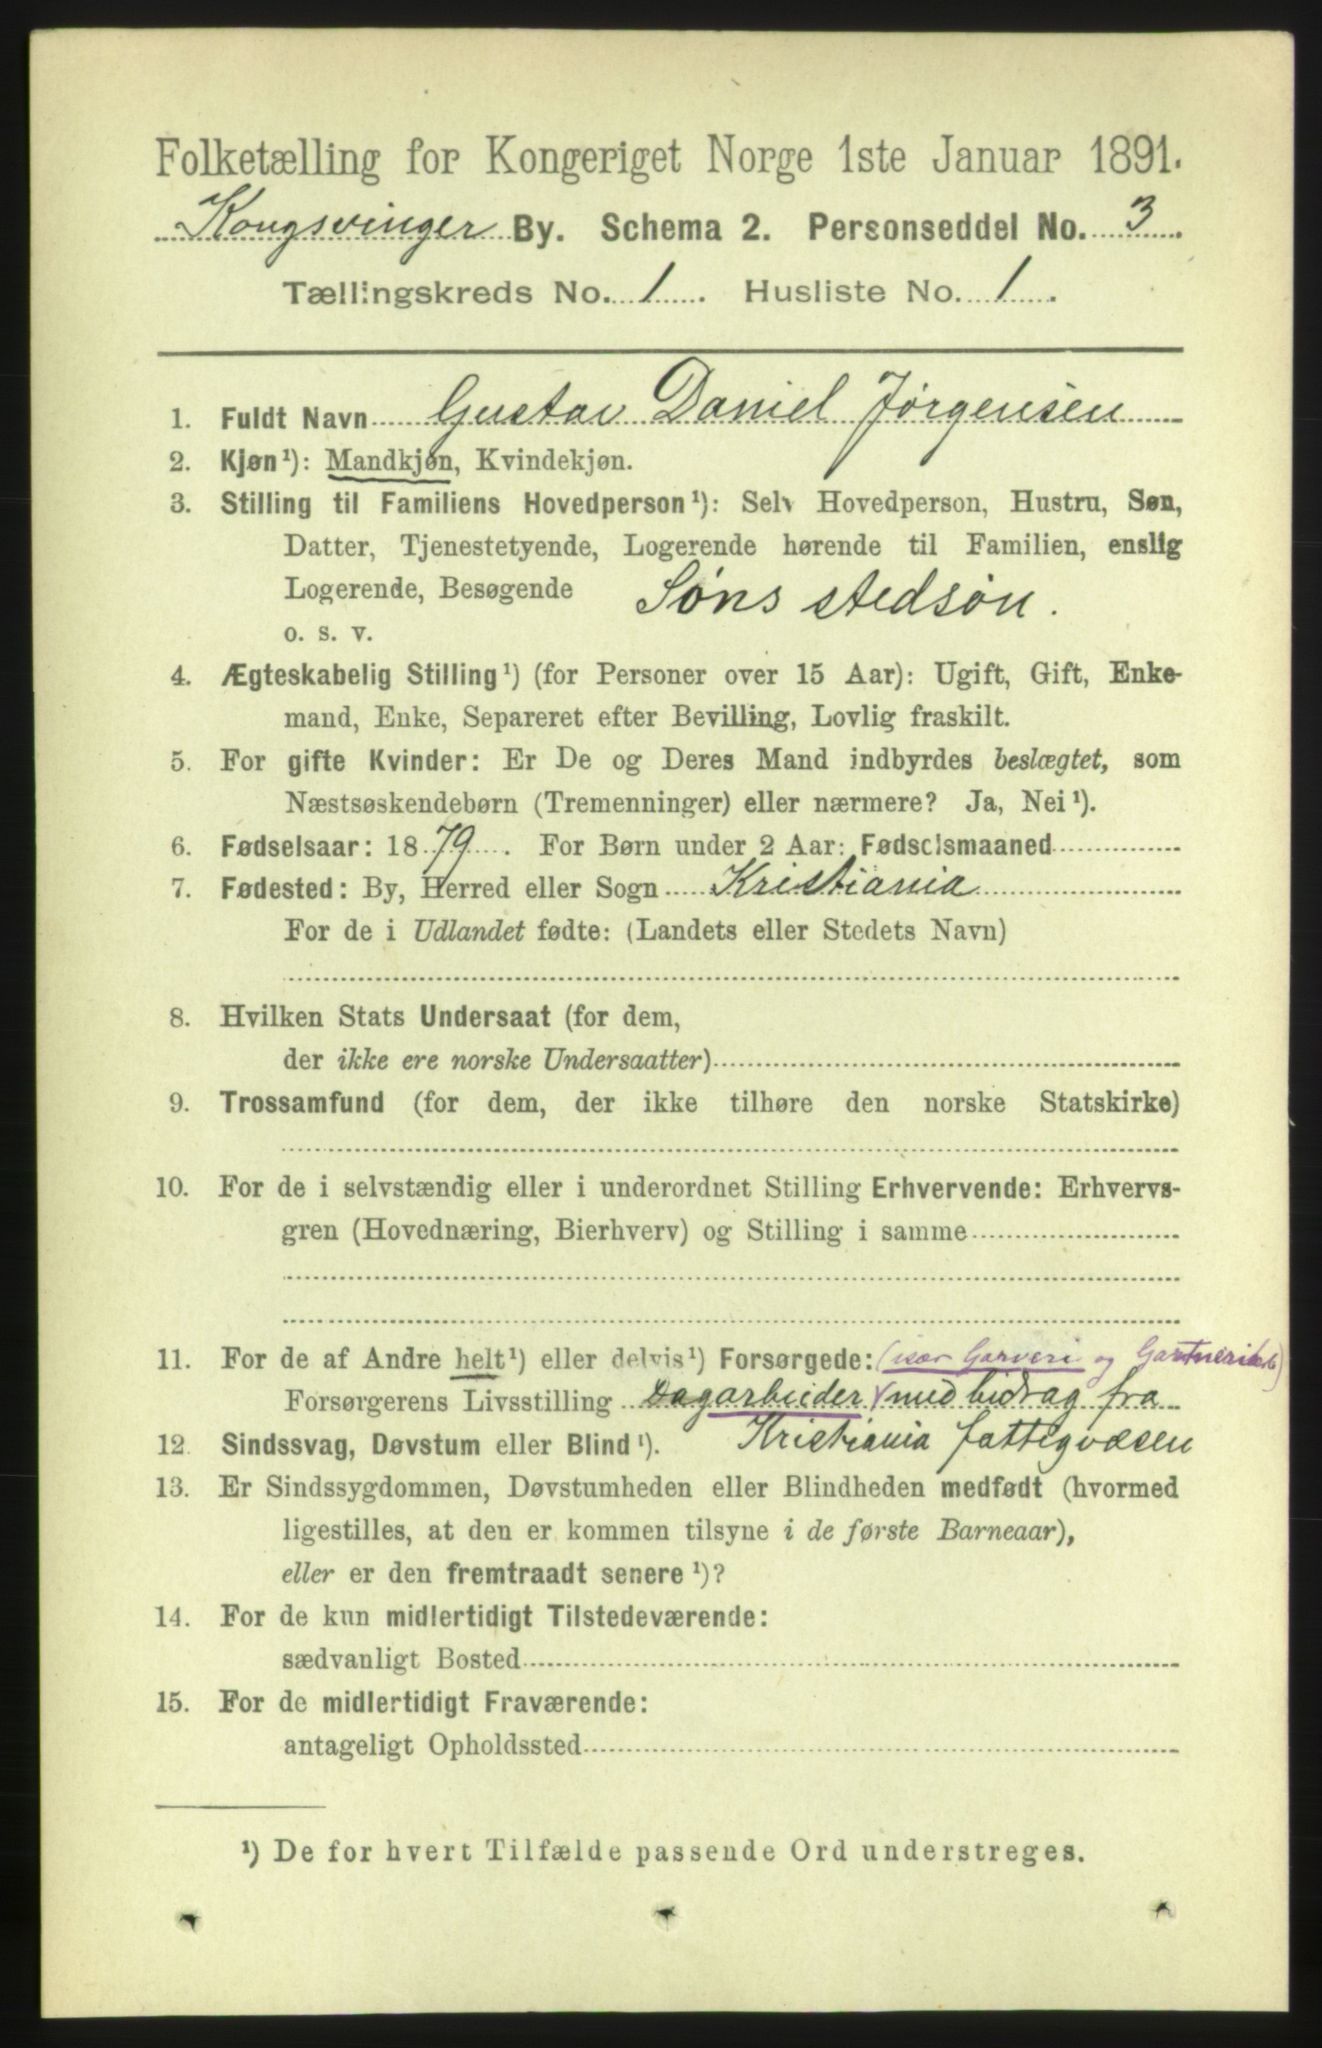 Folketælling for Kongeriget Norge 1ste Januar 1891.
Kongsvinger By. Schema 2. Personseddel No. 3
Tællingskreds No. 1. Husliste No. 1.
1. Fuldt Navn Gustav Daniel Jørgensen
2. Kjøn¹): Mandkjøn, Kvindekjøn.
3. Stilling til Familiens Hovedperson¹): Selv Hovedperson, Hustru, Søn,
Datter, Tjenestetyende, Logerende hørende til Familien, enslig
Logerende, Besøgende Søns stedsøn.
o. s. v.
4. Ægteskabelig Stilling¹) (for Personer over 15 Aar): Ugift, Gift, Enke-
mand, Enke, Separeret efter Bevilling, Lovlig fraskilt.
5. For gifte Kvinder: Er De og Deres Mand indbyrdes beslægtet, som
Næstsøskendebørn (Tremenninger) eller nærmere? Ja, Nei¹).
6. Fødselsaar: 1879. For Børn under 2 Aar: Fødselsmaaned
7. Fødested: By, Herred eller Sogn Kristiania
For de i Udlandet fødte: (Landets eller Stedets Navn)
8. Hvilken Stats Undersaat (for dem,
der ikke ere norske Undersaatter)
9. Trossamfund (for dem, der ikke tilhøre den norske Statskirke)
10. For de i selvstændig eller i underordnet Stilling Erhvervende: Erhvervs-
gren (Hovednæring, Bierhverv) og Stilling i samme
11. For de af Andre helt¹) eller delvis¹) Forsørgede: (især Garveri og
Forsørgerens Livsstilling Dagarbeider med bidrag fra
12. Sindssvag, Døvstum eller Blind¹). Kristiania fattigvæsen
13. Er Sindssygdommen, Døvstumheden eller Blindheden medfødt (hvormed
ligestilles, at den er kommen tilsyne i de første Barneaar),
eller er den fremtraadt senere¹)?
14. For de kun midlertidigt Tilstedeværende:
sædvanligt Bosted
15. For de midlertidigt Fraværende:
antageligt Opholdssted
¹) De for hvert Tilfælde passende Ord understreges.